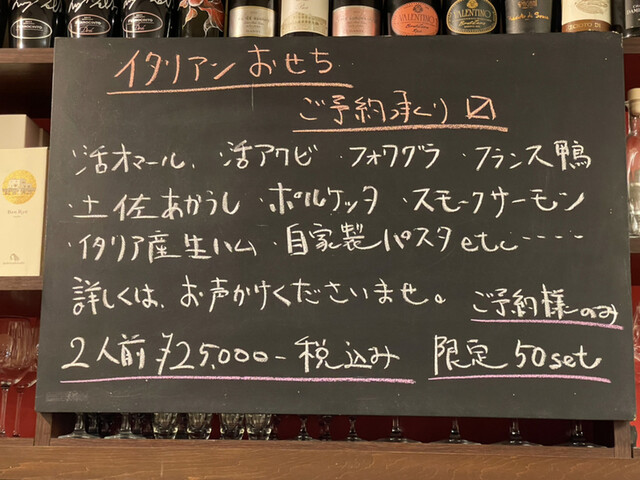 イタリアン おせち
ご予約承くり〼
・活オマール、・活アワビ・フォワグラ・フランス鴨
・土佐あかうし・ポルケッタ・スモークサーモン
・イタリア産生ハム・自家製パスタetc‥‥‥
詳しくは、お声かけくださいませ。
ご予約様のみ
2人前 ¥25,000- 税込み 限定50set
VALENTINO
VALENTINO